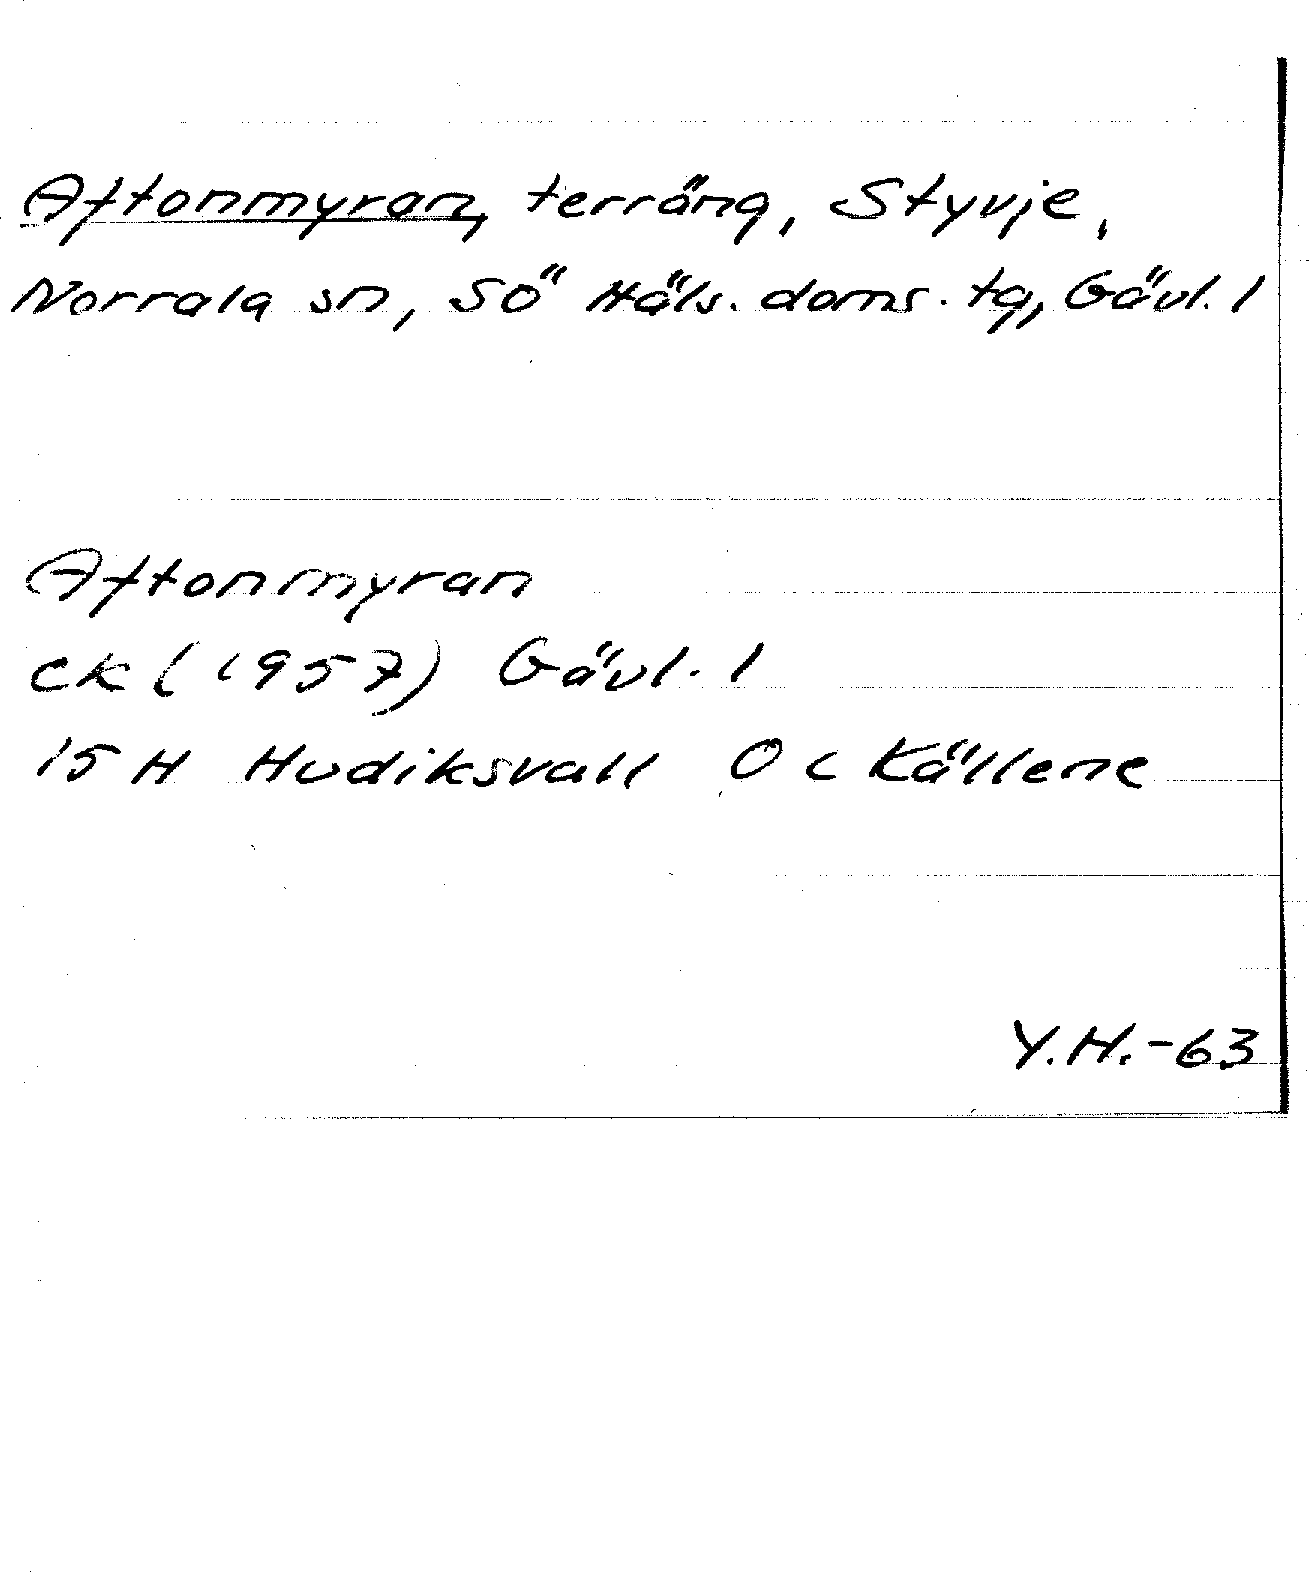 Aftonmyran, terräng, Styvje,
Norrala sn, SÖ Häls. doms. tg, Gävl. l
Aftonmyran
ck (1957) Gävl. l
15 H Hudiksvall O c Källene
Y.H.-63